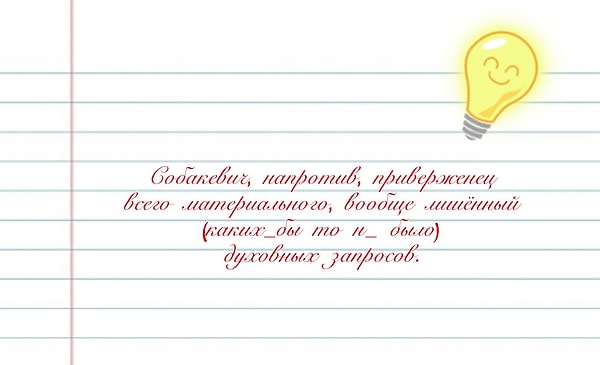 Собакевич, напротив, приверженец
всего материального, вообще лишённый
(каких_бы то н_ было)
духовных запросов.